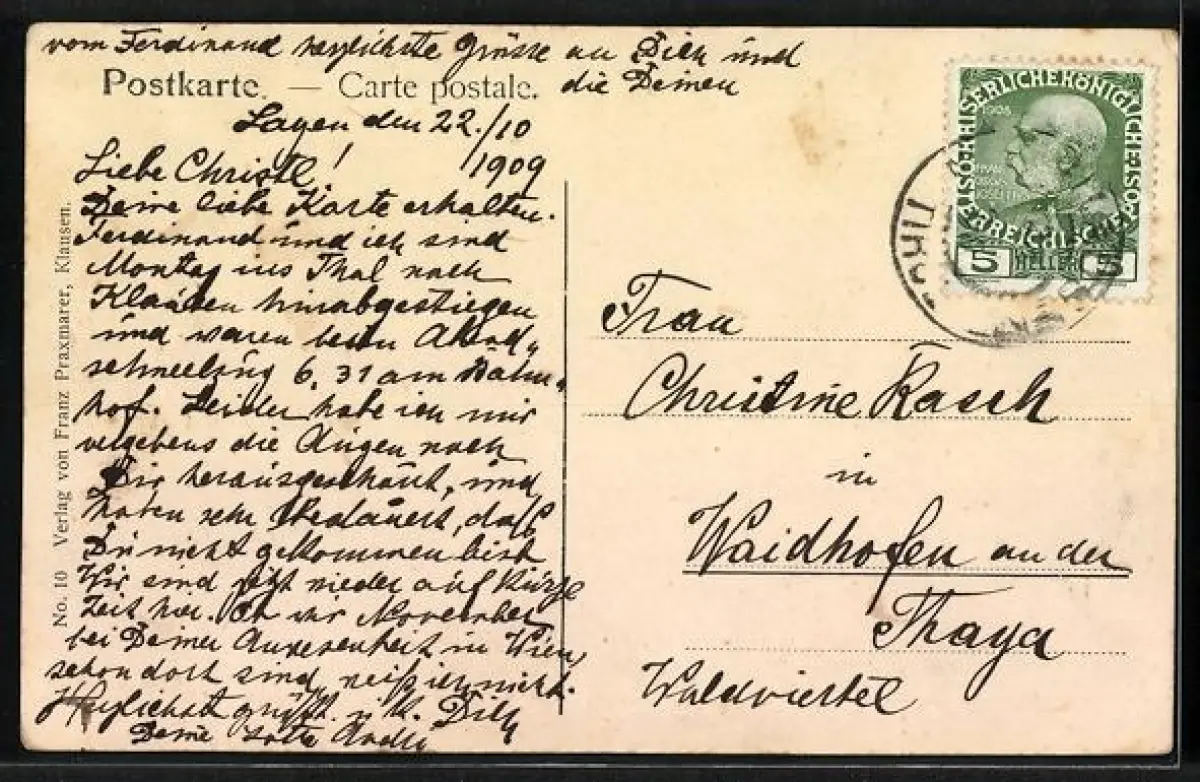 vom Ferdinand herzlichste Grüsse an Dich und
die Deinen
Postkarte. — Carte postale.
Layen den 22./10
1909
Liebe Christl!
Deine liebe Karte erhalten.
Ferdinand und ich sind
Montag ins Thal nach
Klausen hinabgestiegen
und waren beim Abend„
schnellzug 6,31 am Bahn„
hof. Leider habe ich mir
vergebens die Augen nach
Dir herausgeschaut, und
haben sehr bedauert, daß
Du nicht gekommen bist
Wir sind jetzt wieder auf kurze
Zeit hier. Ob wir November
bei Deiner Anwesenheit in Wien
schon dort sind, weiß ich nicht.
Herzlichst grüßt u. k. Dich
Deine
No. 10 Verlag von Franz Praxmarer, Klausen.
KAISERLICHE KÖNIGLICHE ÖSTERREICHISCHE
1908
5 HELLER 5
Frau
Christine Rasch
in
Waidhofen an der
Thaya
Waldviertel